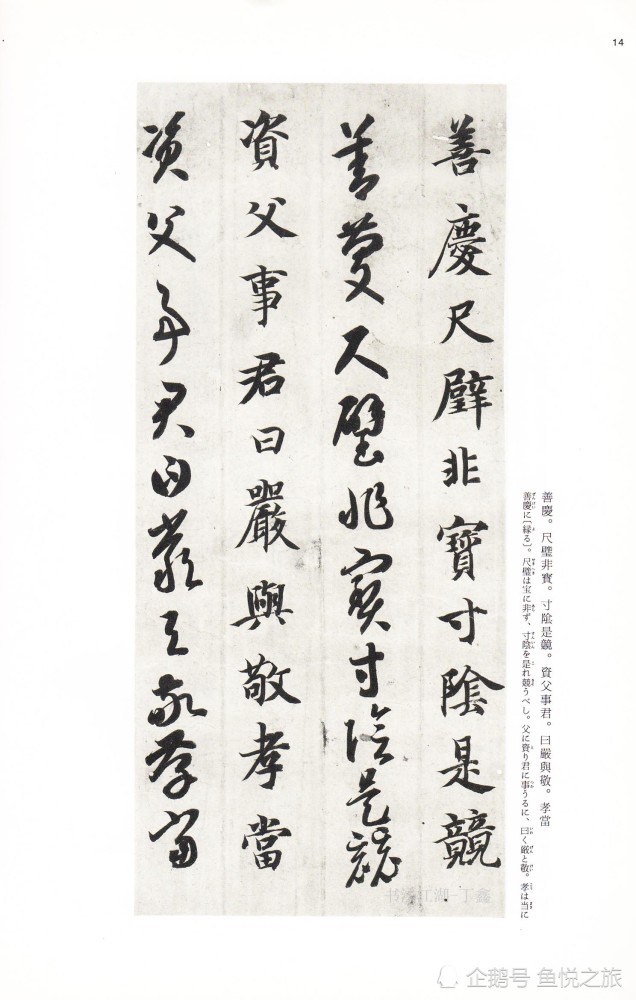 14
善慶尺璧非寶寸陰是競
善慶尺璧非寶寸陰是競
資父事君曰嚴與敬孝當
資父事君曰嚴與敬孝當
善慶。尺璧非寶。寸陰是競。資父事君。曰嚴與敬。孝當
善慶に〔縁る〕。尺璧は宝に非ず、寸陰を是れ競うべし。父に資り君に事うるに、曰く厳と敬。孝は当に
书法江湖-丁鑫
企鹅号 鱼悦之旅